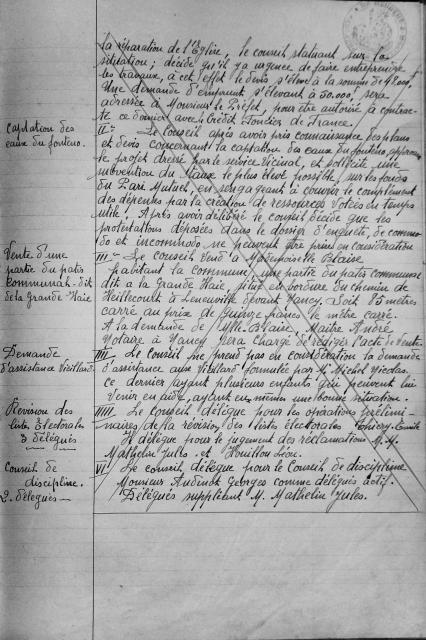 la réparation de l'Eglise, le conseil statuant sur la
situation; décide qu'il y a urgence de faire entreprendre
les travaux, à cet effet le devis s'élève à la somme de 48000f
Une demande d'emprunt s'élevant à 50.000f sera
adressée à Monsieur le Préfet, pour être autorisé à contrac-
ter ce dernier avec le Crédit Foncier de France.
Captation des
eaux du fonteno.
II°- Le Conseil après avoir pris connaissance des plans
et devis concernant la captation des eaux du fonteno, approuve
le projet dressé par le service vicinal, et sollicite une
subvention du taux le plus élevé possible, sur les fonds
du Pari Mutuel, en s'engageant à couvrir le complément
des dépenses par la création de ressources votées en temps
utile. Après avoir délibéré le conseil décide que les
protestations déposées dans le dossier d'enquête, de commo-
do et incommodo ne peuvent être prises en considération
Vente d'une
partie du patis
communal-dit
de la Grande Haie
III.- Le Conseil vend à Mademoiselle Blaise
habitant la commune, une partie du patis communal
dit a la Grande Haie, situé en bordure du chemin de
Heillecourt à Leneuville devant Nancy. Soit 85 mètres
carré au prix de quinze francs le mètre carré.
A la demande de Mlle Blaise, Maitre André
Notaire à Nancy sera chargé de rédiger l'acte de vente.
Demande
d'assistance Vieillard
IIII Le Conseil ne prend pas en considération la demande
d'assistance aux Vieillard formulée par M. Michel Nicolas,
ce dernier ayant plusieurs enfants qui peuvent lui
venir en aide, ayant eux mêmes une bonne situation.
Révision des
listes Electorales
3 délégués
IIIII Le Conseil délègue pour les opérations prélimi-
naires de la révision des listes électorales
Il délègue pour le jugement des réclamations M.M.
Mathelin Jules. et Houillon Léon.
Conseil de
discipline.
2. délégués
VI Le conseil délègue pour le Conseil de discipline
Monsieur Audinot Georges comme délégués actif.
Délégués suppléant M. Mathelin Jules.